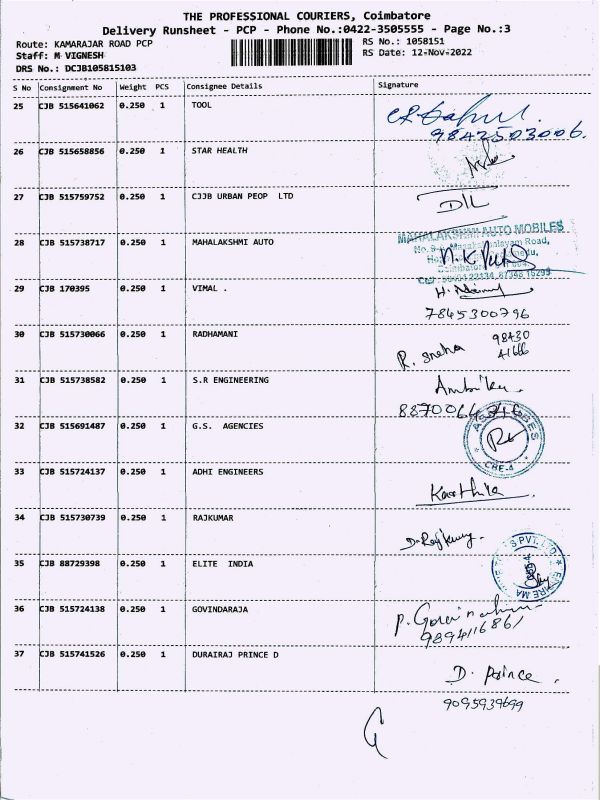 THE PROFESSIONAL COURIERS, Coimbatore
Delivery Runsheet - PCP - Phone No.:0422-3505555 - Page No.:3
Route: KAMARAJAR ROAD PCP
RS No.: 1058151
Staff: M VIGNESH
RS Date: 12-Nov-2022
DRS No.: DCJB105815103
S No Consignment No Weight PCS Consignee Details Signature
25 CJB 515641062 0.250 1 TOOL
9842503006.
26 CJB 515658856 0.250 1 STAR HEALTH
27 CJB 515759752 0.250 1 CJJB URBAN PEOP LTD
28 CJB 515738717 0.250 1 MAHALAKSHMI AUTO
MAHALAKSHMI AUTO MOBILES
29 CJB 170395 0.250 1 VIMAL .
7845300796
30 CJB 515730066 0.250 1 RADHAMANI
R. Sneha 98430 41666
31 CJB 515738582 0.250 1 S.R ENGINEERING
32 CJB 515691487 0.250 1 G.S. AGENCIES
CBE-4
33 CJB 515724137 0.250 1 ADHI ENGINEERS
Karthika
34 CJB 515730739 0.250 1 RAJKUMAR
D. Rajkumar.
35 CJB 88729398 0.250 1 ELITE INDIA
36 CJB 515724138 0.250 1 GOVINDARAJA
9894116861
37 CJB 515741526 0.250 1 DURAIRAJ PRINCE D
D. Prince .
9095939699